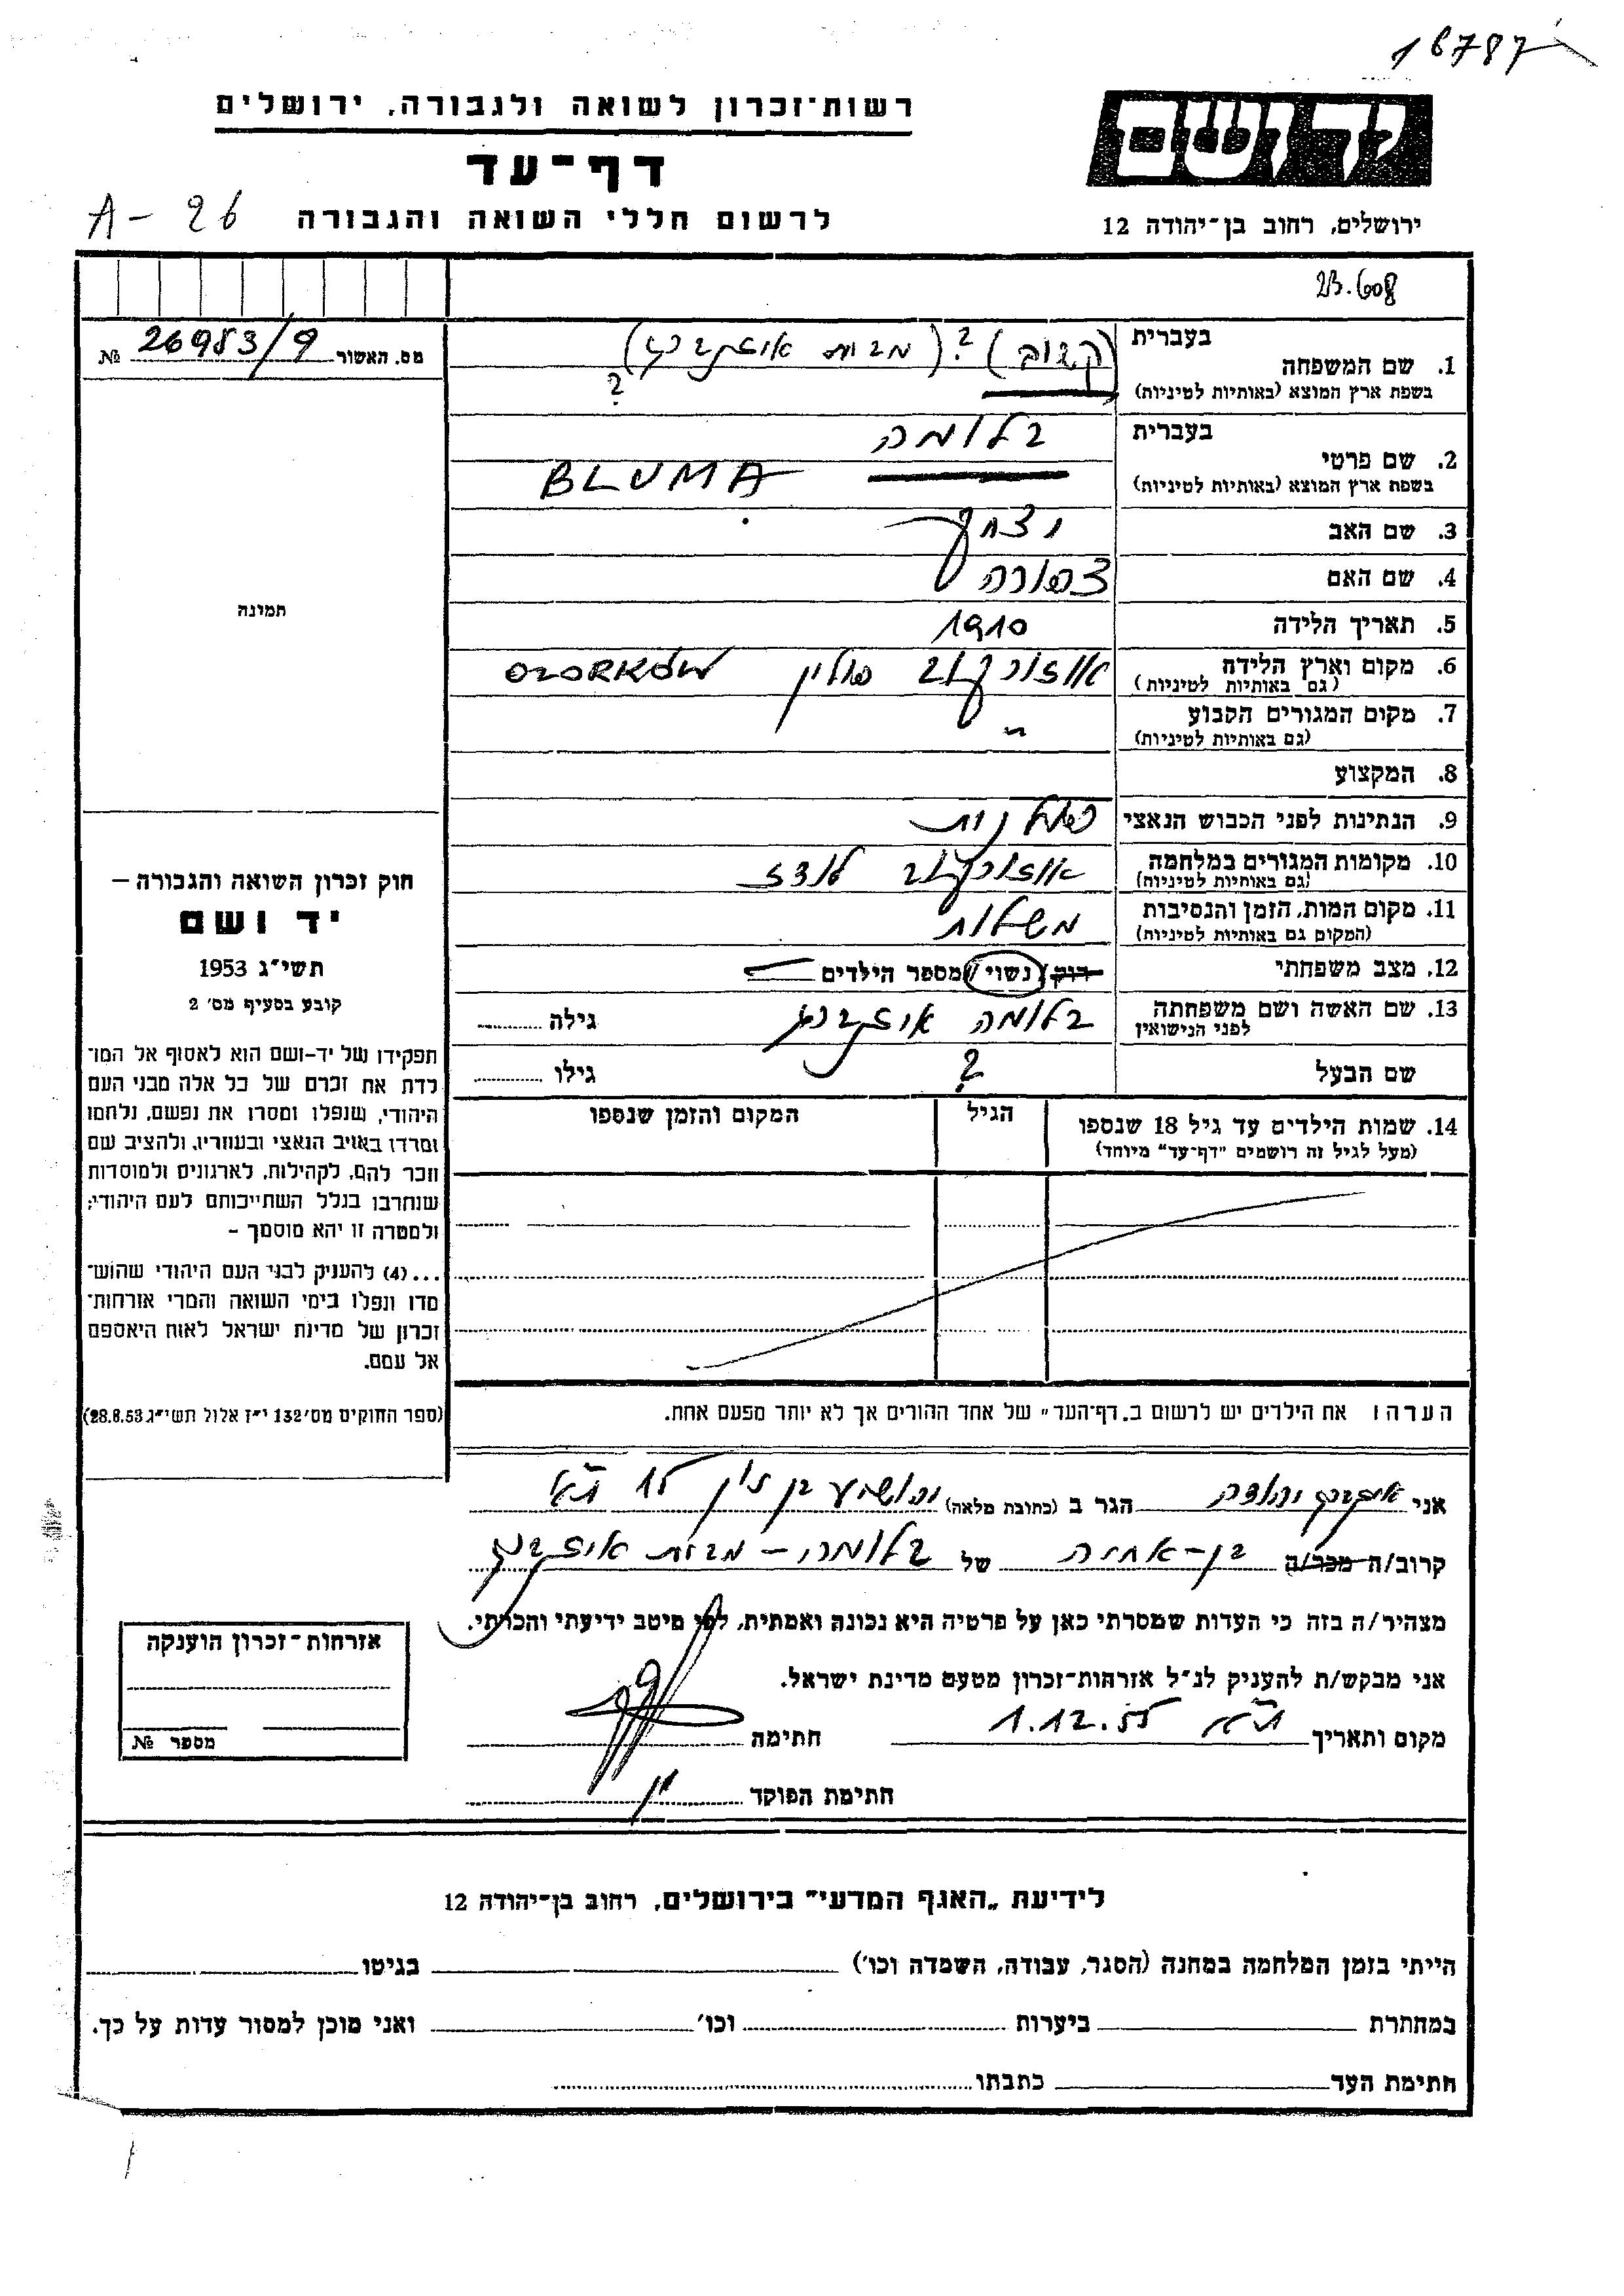 16787
רשות־זכרון לשואה ולגבורה, ירושלים
יד ושם
דף־עד
לרשום חללי השואה והגבורה
A - 26
ירושלים, רחוב בן־יהודה 12
23.608
מס. האשור 26953/9 №
1. שם המשפחה
בעברית
בשפת ארץ המוצא (באותיות לטיניות)
(קשוב) ? (מבית
?
2. שם פרטי
בעברית בלומה
בשפת ארץ המוצא (באותיות לטיניות) BLUMA
3. שם האב יצחק
4. שם האם צפורה
5. תאריך הלידה 1910
6. מקום וארץ הלידה אוזורקוב פולין OZORKÓW
(גם באותיות לטיניות)
7. מקום המגורים הקבוע "
(גם באותיות לטיניות)
8. המקצוע
9. הנתינות לפני הכבוש הנאצי פולנית
10. מקומות המגורים במלחמה אוזורקוב לודז
(גם באותיות לטיניות)
11. מקום המות, הזמן והנסיבות
(המקום גם באותיות לטיניות)
12. מצב משפחתי רוק/ נשוי /מספר הילדים
13. שם האשה ושם משפחתה בלומה גילה
לפני הנישואין
שם הבעל ? גילו
14. שמות הילדים עד גיל 18 שנספו הגיל המקום והזמן שנספו
(מעל לגיל זה רושמים "דף־עד" מיוחד)
הערה ו את הילדים יש לרשום ב„דף־העד" של אחד ההורים אך לא יותר מפעם אחת.
תמונה
חוק זכרון השואה והגבורה –
יד ושם
תשי"ג 1953
קובע בסעיף מס' 2
תפקידו של יד-ושם הוא לאסוף אל המו־
לדת את זכרם של כל אלה מבני העם
היהודי, שנפלו ומסרו את נפשם, נלחמו
ומרדו באויב הנאצי ובעוזריו, ולהציב שם
וזכר להם, לקהילות, לארגונים ולמוסדות
שנחרבו בגלל השתייכותם לעם היהודי;
ולמטרה זו יהא מוסמך –
...(4) להעניק לבני העם היהודי שהוש־
מדו ונפלו בימי השואה והמרי אזרחות־
זכרון של מדינת ישראל לאות היאספם
אל עמם.
(ספר החוקים מס' 132 י"ז אלול תשי"ג 28.8.53)
אני יהודה הגר ב (כתובת מלאה) יהושוע בן נון 15 ת"א
קרוב/ה מכר/ה בן-אחיה של בלומה - מבית
מצהיר/ה בזה כי העדות שמסרתי כאן על פרטיה היא נכונה ואמתית, לפי מיטב ידיעתי והכרתי.
אני מבקש/ת להעניק לנ"ל אזרחות־זכרון מטעם מדינת ישראל.
מקום ותאריך ת"א 1.12.55 חתימה
חתימת הפוקד
אזרחות־זכרון הוענקה
מספר №
לידיעת „האגף המדעי" בירושלים, רחוב בן־יהודה 12
הייתי בזמן המלחמה במחנה (הסגר, עבודה, השמדה וכו') בגיטו
במחתרת ביערות וכו' ואני מוכן למסור עדות על כך.
חתימת העד כתבתו